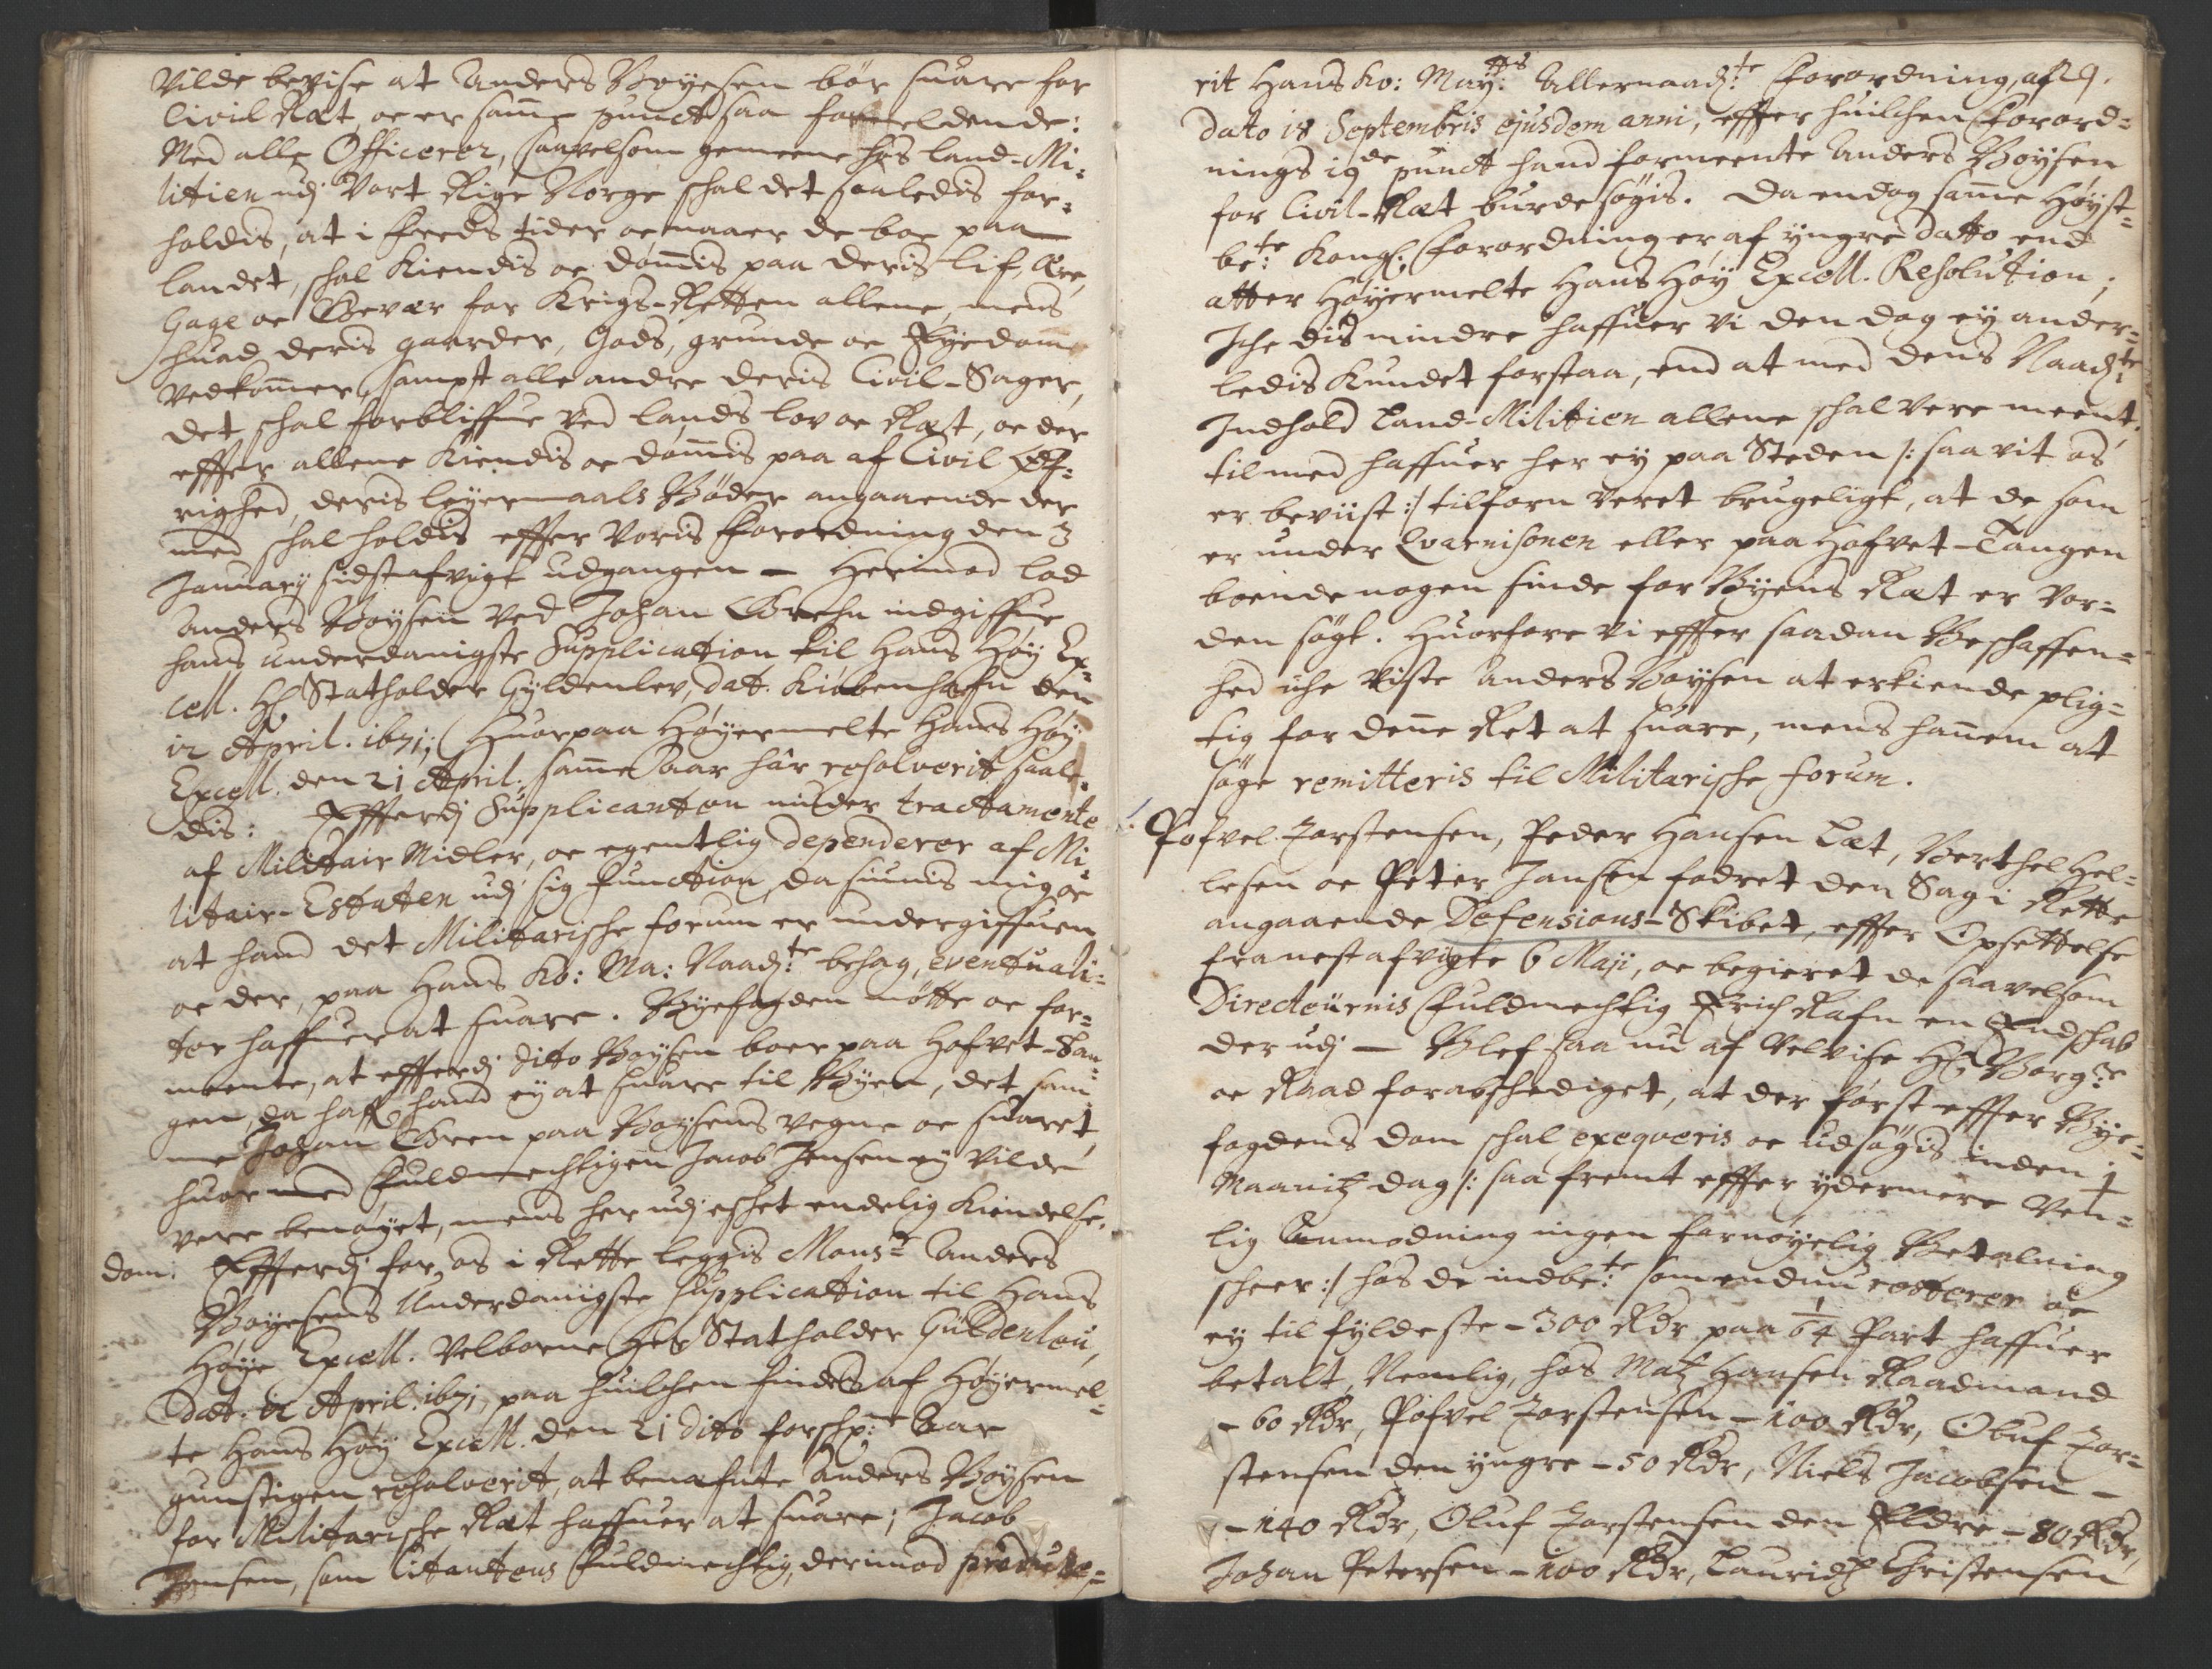 Vilde bevise at Anders Boyesen bör suare for
Civil Ræt, oc er samme punct saa formeldende:
Med alle Officerer, saavelsom gemeene hos Land-Mi-
litien udj Vort Rige Norge schal det saaledis for-
holdis, at i freds tider oc naar de boe paa
landet, schal Kiendis oc dömmis paa deris lif, Ære,
Gage oc Gevær for Krigs-Retten allene, mens
huad deris gaarder, Gods, grunde oc Eyedomme
vedkommer, sampt alle andre deris Civil-Sager,
det schal forbliffue ved lands lov oc Ræt, oc der
effter allene Kiendis oc dömmis paa af Civil Øf-
righed, deris leyermaals Böder angaaende der
med schal holdis effter Voris Forordning den 3
January sidstafvigt udgangen — Herimod lod
Anders Boysen ved Johan Brehn indgiffue
hans underdanigste Supplication til Hans Höy Ex-
cell. H: Statholder Gyldenlev, dat. Kiöbenhafn den
12 April. 1671; Huorpaa Höyermelte Hans Höy
Excell. den 21 April. samme aar här resolverit saale-
dis: Effterdj Supplicanten niuder tractamente
af Militair Midler, oc egentlig dependerer af Mi-
litair-Estaten udj sig function, da siunis mig oc
at hand det Militarische forum er undergiffuen
oc der, paa Hans Ko: Ma: Naadste behag, eventuali-
ter haffuer at suare. Byefogden mötte oc for-
meente, at effterdj ditto Boysen boer paa Hofvet-Tan-
gen, da haff hand ey at suare til Byen, det sam-
me Johan Breen paa Boysens vegne oc suaret,
huormed fuldmechtigen Jacob Jensen ey vilde
vere benöyet, mens her udj eschet endelig Kiendelse.
Dom: Effterdj for os i Rette leggis Monsr Anders
Boyesens Underdanigste Supplication til Hans
Höye Excell. Velborne Her Statholder Güldenleü,
Dat. 12 April. 1671, paa huilchen findes af Höyermel-
te Hans Höy Excell. den 21 dito forschr:ne Aar
gunstigen resolverit, at benefnte Anders Boysen
for Militarische Ræt haffuer at suare; Jacob
Jensen, som Citantens fuldmechtig, derimod produce-
rit Hans Ko: May:ts Allernaad:te Forordning, af
dato 18 Septembris ejusdem anni, effter huilchen Forord-
nings 19de punct hand formeente Anders Boysen
for Civil-Ræt burde sögis. Da endog samme Höyst-
be:te Kongl: Forordning er af yngre datto end
atter Höyermelte Hans Höy Excell. Resolution;
Iche dis mindre haffuer vi den dog ey ander-
ledis Kundet forstaa, end at med dens Naad:te
Indhold Land-Militien allene schal vere meent.
til med haffuer her ey paa Steden /: saavit os
er beviist :/ tilforn veret brugeligt, at de som
er under Qvarnisonen eller paa Hofvet-Tangen
boende nogen sinde for Byens Ræt er vor-
den sögt. Huorfore vi effter saadan Beschaffen-
hed iche viste Anders Boysen at erkiende plig-
tig for denne Ret at suare, mens hannem at
söge remitteris til Militarische forum.
Pofvel Torstensen, Peder Hansen Læt, Berthel Hel-
lesen oc Peter Jansen fodret den Sag i Rette
angaaende Defensions-Skibet, effter Opsettelse
fra nestafvigte 6 Maji, oc begieret de saavelsom
Directeürnis fuldmechtig Erich Rafn en Endschab
der udj — Blef saa nu af Velvise H: Borg:re
oc Raad forabschediget, at der först effter Bye-
fogdens dom schal exeqveris oc udsögis inden 1
Maanitz dag /: saa fremt effter ydermere Ven-
lig Anmodning ingen fornöyelig Betalning
scheer :/ hos de indbe:te som endnu resterer oc
ey til fyldeste - 300 Rdr paa 1/64 Part haffuer
betalt, Nemlig, hos Matz Hansen Raadmand
- 60 Rdr, Pofvel Torstensen - 100 Rdr, Oluf Tor-
stensen den yngre - 50 Rdr, Niels Jacobsen -
- 140 Rdr, Oluf Torstensen den Eldre - 80 Rdr,
Johan Petersen - 100 Rdr, Lauridtz Christensen